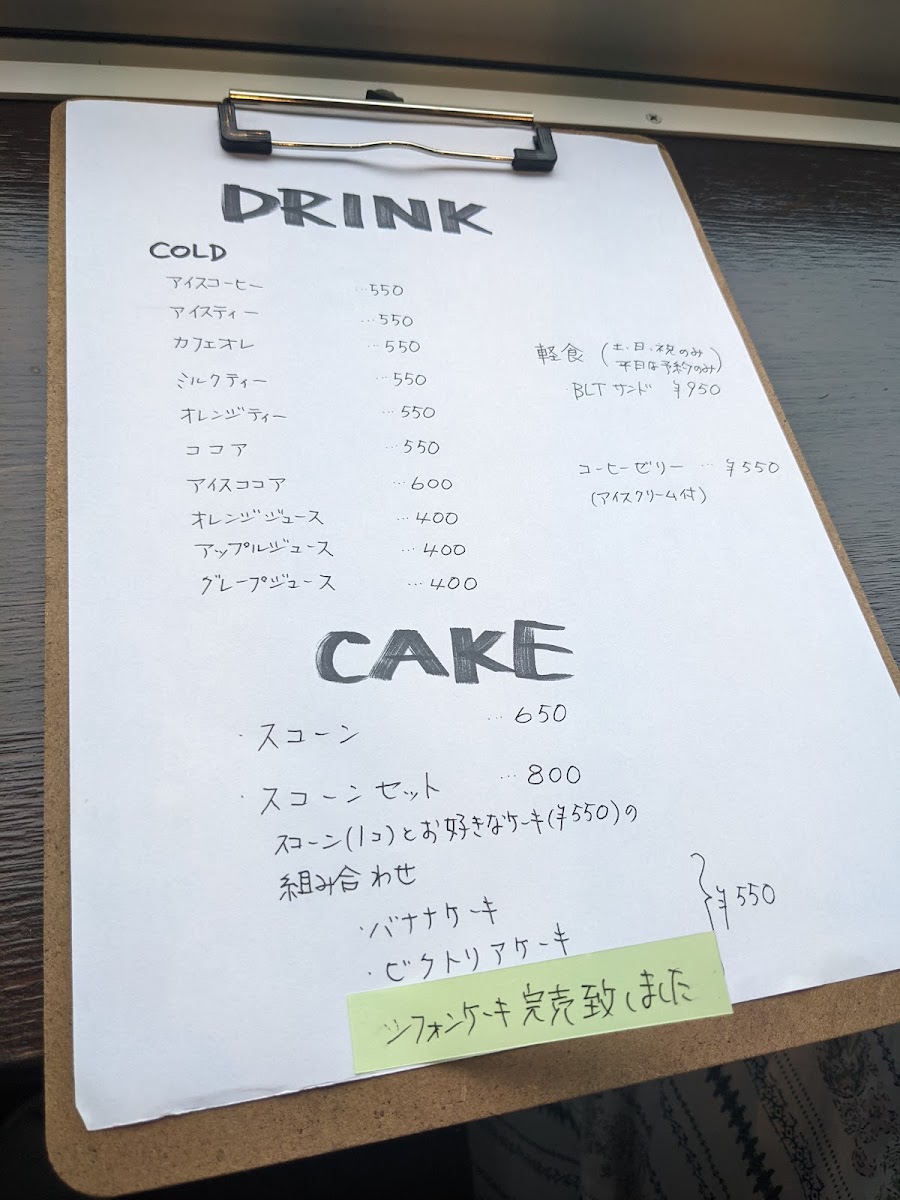 DRINK
COLD
アイスコーヒー …550
アイスティー …550
カフェオレ …550
ミルクティー …550
オレンジティー …550
ココア …550
アイスココア …600
オレンジジュース …400
アップルジュース …400
グレープジュース …400
軽食 (土、日、祝のみ
平日は予約のみ)
・BLTサンド ¥950
コーヒーゼリー … ¥550
(アイスクリーム付)
CAKE
・スコーン …650
・スコーンセット …800
スコーン(1コ)とお好きなケーキ(¥550)の
組み合わせ
・バナナケーキ
・ビクトリアケーキ
} ¥550
シフォンケーキ完売致しました